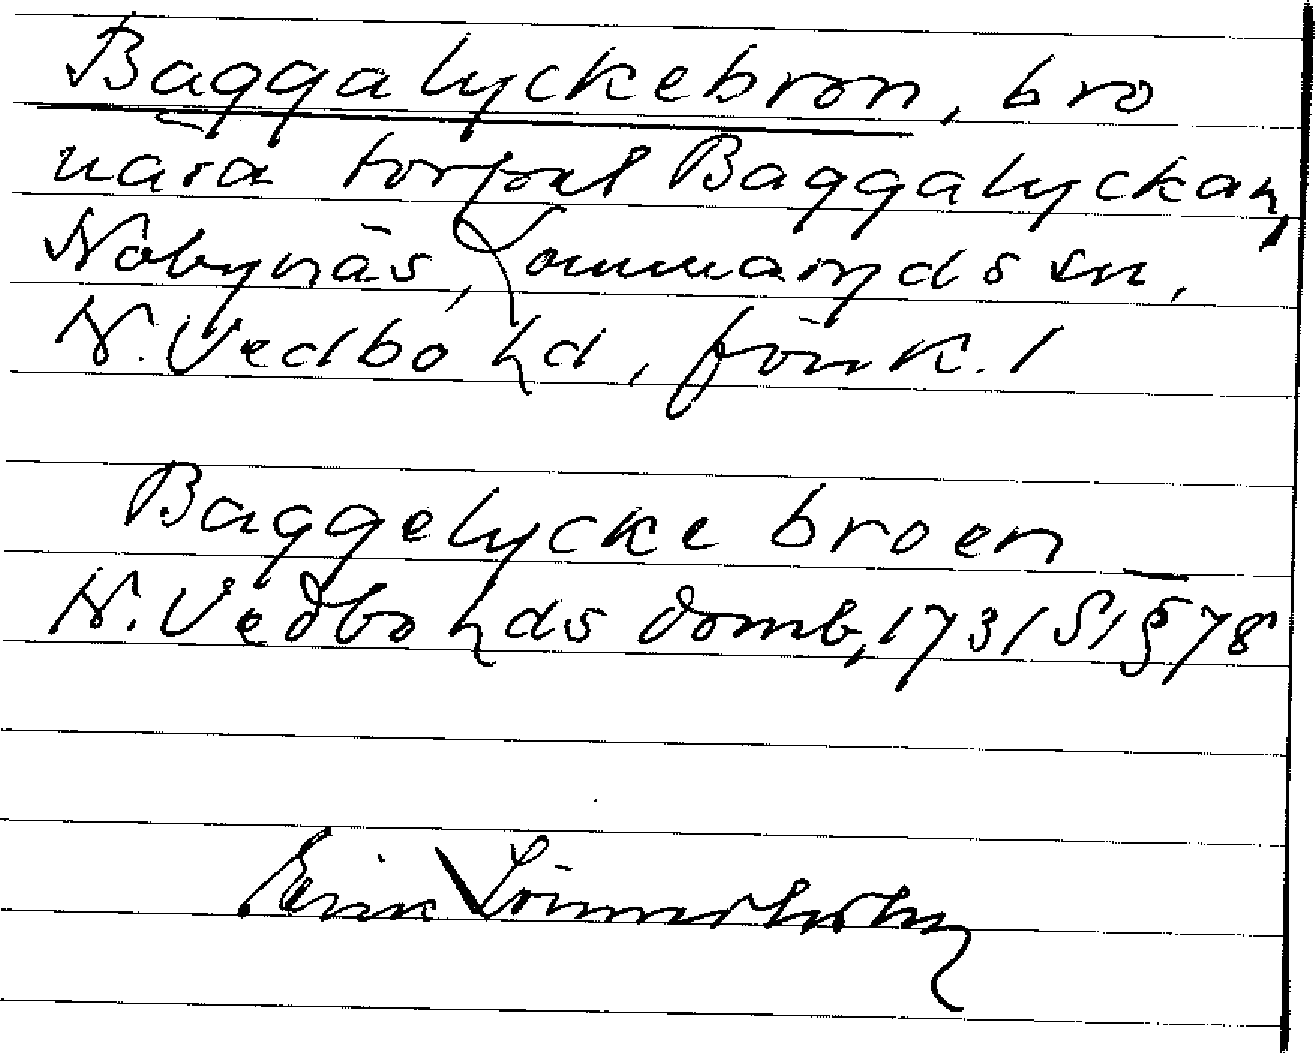 Baggalyckebron, bro
nära torpet Baggalyckan,
Nobynäs, Lommaryds sn,
N. Vedbo hd, Jönk. l
Baggelycke broen
N. Vedbo hds domb, 1731 S1 § 78
Erik Lönnerholm